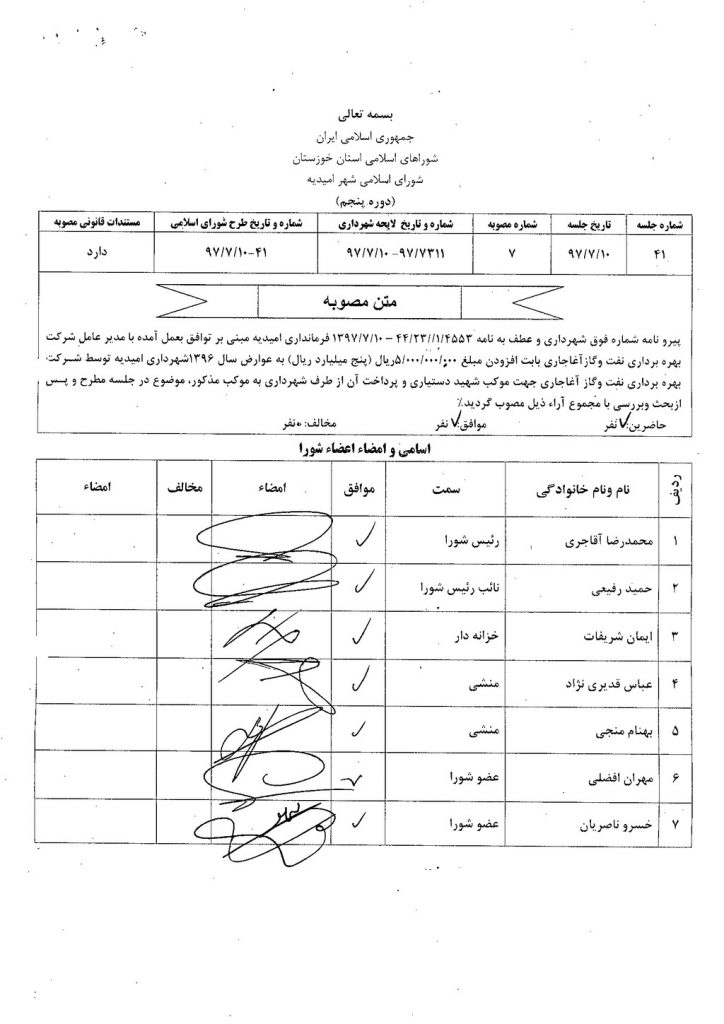 بسمه تعالی
جمهوری اسلامی ایران
شوراهای اسلامی استان خوزستان
شورای اسلامی شهر امیدیه
(دوره پنجم)
شماره جلسه	تاریخ جلسه	شماره مصوبه	شماره و تاریخ لایحه شهرداری	شماره و تاریخ طرح شورای اسلامی	مستندات قانونی مصوبه
۴۱	۹۷/۷/۱۰	۷	۹۷/۷/۱۰ -۹۷/۷۳۱۱	۹۷/۷/۱۰-۴۱	دارد
متن مصوبه
پیرو نامه شماره فوق شهرداری و عطف به نامه ۴۴/۲۳//۱/۴۵۵۳ – ۱۳۹۷/۷/۱۰ فرمانداری امیدیه مبنی بر توافق بعمل آمده با مدیر عامل شرکت
بهره برداری نفت وگازآغاجاری بابت افزودن مبلغ ۵/۰۰۰/۰۰۰/۰۰۰ریال (پنج میلیارد ریال) به عوارض سال ۱۳۹۶شهرداری امیدیه توسط شرکت
بهره برداری نفت وگاز آغاجاری جهت موکب شهید دستیاری و پرداخت آن از طرف شهرداری به موکب مذکور، موضوع در جلسه مطرح و پس
ازبحث وبررسی با مجموع آراء ذیل مصوب گردید٪
حاضرین:۷ نفر	موافق:۷ نفر	مخالف:۰نفر
اسامی و امضاء اعضاء شورا
ردیف	نام ونام خانوادگی	سمت	موافق	امضاء	مخالف	امضاء
۱	محمدرضا آقاجری	رئیس شورا	✓
۲	حمید رفیعی	نائب رئیس شورا	✓
۳	ایمان شریفات	خزانه دار	✓
۴	عباس قدیری نژاد	منشی	✓
۵	بهنام منجی	منشی	✓
۶	مهران افضلی	عضو شورا	✓
۷	خسرو ناصریان	عضو شورا	✓